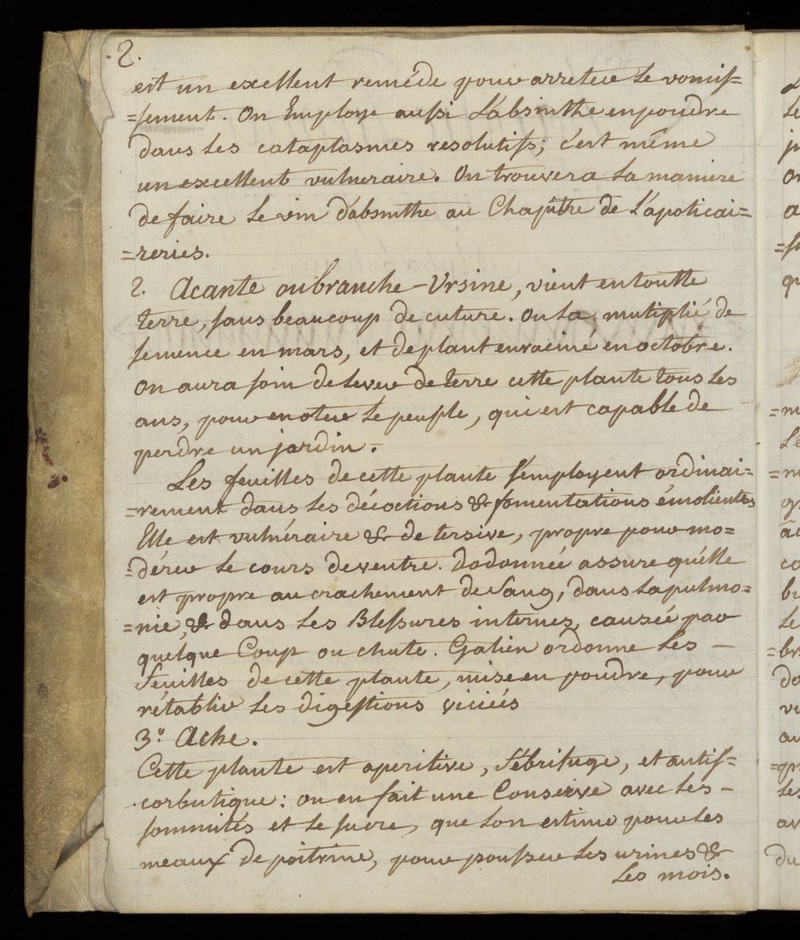 .2.
est un excellent reméde pour arreter le vomis=
=sement. On Employe aussi L'absinthe en poudre
dans Les cataplasmes resolutifs; c'est même
un excellent vulneraire. On trouvera La maniere
de faire Le vin d'absinthe au Chapitre de L'apoticai=
=reries.
2. Acante ou branche-Ursine, vient en toutte
terre, sans beaucoup de cuture. On La mutiplié de
semence en mars, et de plant enraciné en octobre.
on aura soin de Lever de terre cette plante tous Les
ans, pour en oter Le peuple, qui est capable de
perdre un jardin.
Les feuilles de cette plante s'employent ordinai=
=rement dans Les décoctions & fomentations émolientes
Elle est vulnéraire & detersive, propre pour mo=
=dérer Le cours de ventre. Dodonneé assure qu'elle
est propre au crachement de Sang, dans La pulmo=
=nie, & dans Les Blessures internes, causée par
quelque Coup ou chute. Galien ordonne Les —
feuilles de cette plante, mise en poudre, pour
rétablir Les digestions viciés
3.º Ache.
Cette plante est aperitive, Fébrifuge, et antis=
.corbutique: on en fait une Conserve avec Les –
sommités et Le sucre, que L'on estime pour Les
meaux de poitrine, pour pousser Les urines &
Les mois.